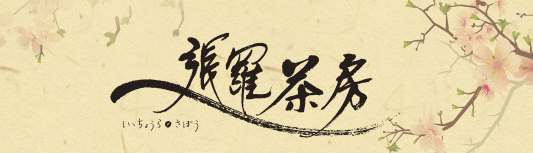 一張羅茶房
いっちょうら●さぼう